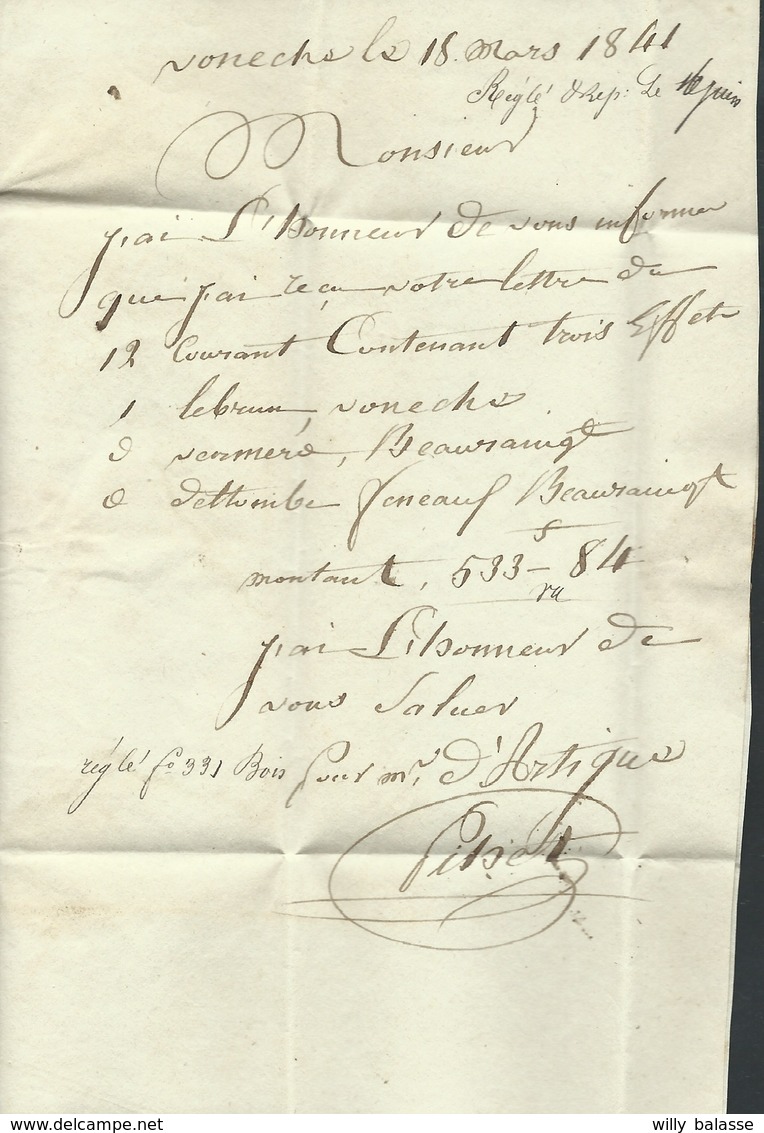 voneche le 18 mars 1841
Réglé & rep: Le 16 juin
Monsieur
j'ai L'honneur de vous informer
que j'ai reçu votre lettre du
12 Courant Contenant trois Effets
1 lebrun, voneche
d vermere, Beauraing
d dettombe Beauraing
montant, 533 - 84
j'ai L'honneur de
vous Saluer
réglé fo 331 Bois pour mr. d'Artigue
willy balasse